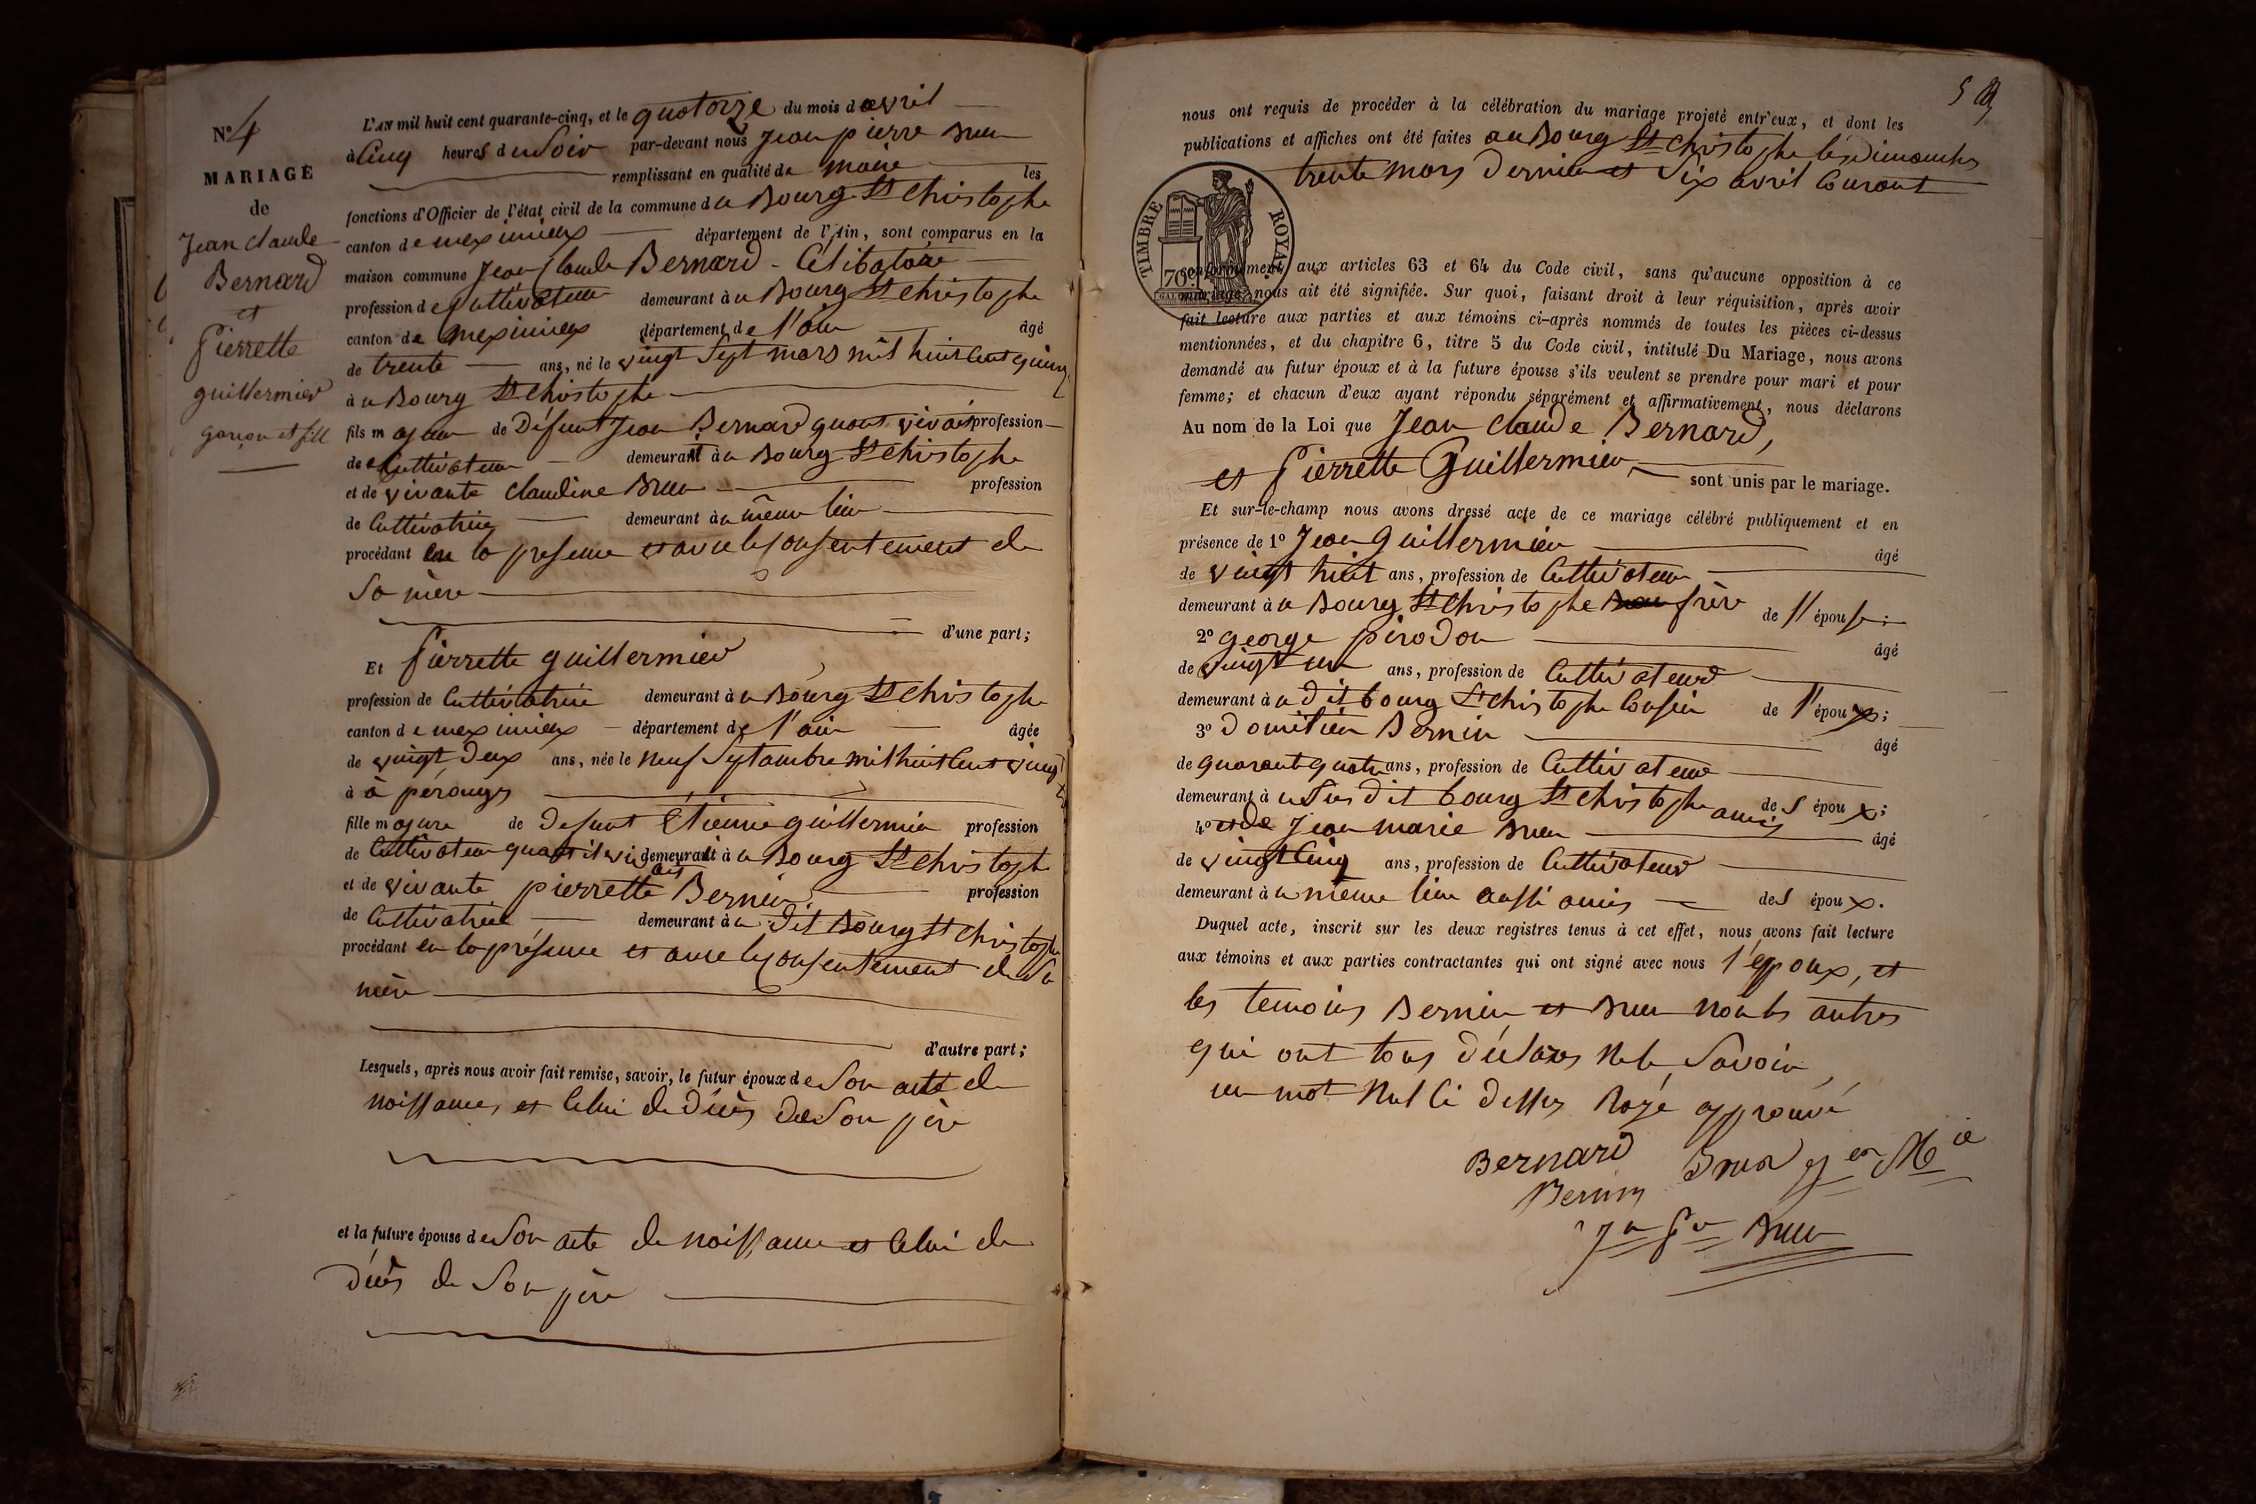 N.º 4
MARIAGE
de
Jean Claude
Bernard
et
Pierrette
guillermier
garçon et fille
L'AN mil huit cent quarante-cinq, et le quatorze du mois d'avril
à Cinq heures du Soir par-devant nous Jean pierre Brun
remplissant en qualité de maire les
fonctions d'Officier de l'état civil de la commune du Bourg St Christophe
canton de meximieux département de l'Ain, sont comparus en la
maison commune Jean Claude Bernard - Célibataire
profession de Cultivateur demeurant à u Bourg St Christophe
canton de meximieux département de l'ain âgé
de trente ans, né le vingt Sept mars mil huit Cent quinze
à u Bourg St Christophe
fils majeur de Défunt Jean Bernard quant vivait profession
de Cultivateur demeurant à u Bourg St Christophe
et de vivante Claudine Brun profession
de Cultivatrice demeurant à u même lieu
procédant en la presence et avec le Consentement de
Sa mère
d'une part;
Et Pierrette guillermier
profession de Cultivatrice demeurant à u Bourg St Christophe
canton de meximieux département de l'ain âgée
de vingt deux ans, née le neuf Septambre mil huit Cent vingt
à à pérouges
fille majeure de défunt Étienne guillermier profession
de Cultivateur quant il vivait demeurant à u Bourg St Christophe
et de vivante pierrette Bernin profession
de Cultivatrice demeurant à u dit Bourg St Christophe
procédant en la présence et avec le Consentement de Sa
mère
d'autre part;
Lesquels, après nous avoir fait remise, savoir, le futur époux de Son acte de
naissance, et Celui de Décès de Son père
et la future épouse de Son acte de naissance et Celui de
Décès de Son père
5
nous ont requis de procéder à la célébration du mariage projeté entr'eux, et dont les
publications et affiches ont été faites au Bourg St Christophe les dimanches
trente mars Dernier et Six avril Courant
TIMBRE ROYAL
70 c
conformément aux articles 63 et 64 du Code civil, sans qu'aucune opposition à ce
mariage nous ait été signifiée. Sur quoi, faisant droit à leur réquisition, après avoir
fait lecture aux parties et aux témoins ci-après nommés de toutes les pièces ci-dessus
mentionnées, et du chapitre 6, titre 5 du Code civil, intitulé Du Mariage, nous avons
demandé au futur époux et à la future épouse s'ils veulent se prendre pour mari et pour
femme; et chacun d'eux ayant répondu séparément et affirmativement, nous déclarons
Au nom de la Loi que Jean Claude Bernard,
et Pierrette Guillermier, sont unis par le mariage.
Et sur-le-champ nous avons dressé acte de ce mariage célébré publiquement et en
présence de 1º Jean Guillermier âgé
de vingt huit ans, profession de Cultivateur
demeurant à u Bourg St Christophe frère de l'épouse;
2º george pirodon âgé
de vingt un ans, profession de Cultivateur
demeurant à u dit bourg St Christophe Cousin de l'époux;
3º Domitien Bernin âgé
de quarant quatre ans, profession de Cultivateur
demeurant à u Sus dit bourg St Christophe amis des époux;
4º Jean marie Brun âgé
de vingt Cinq ans, profession de Cultivateur
demeurant à u même lieu aussi amis des époux.
Duquel acte, inscrit sur les deux registres tenus à cet effet, nous avons fait lecture
aux témoins et aux parties contractantes qui ont signé avec nous l'époux, et
les temoins Bernin et Brun non les autres
qui ont tous déclarés ne le Savoir
un mot nul Ci dessus Rayé approuvé
Bernard Brun jen Mie
Bernin
Jn Pre Brun